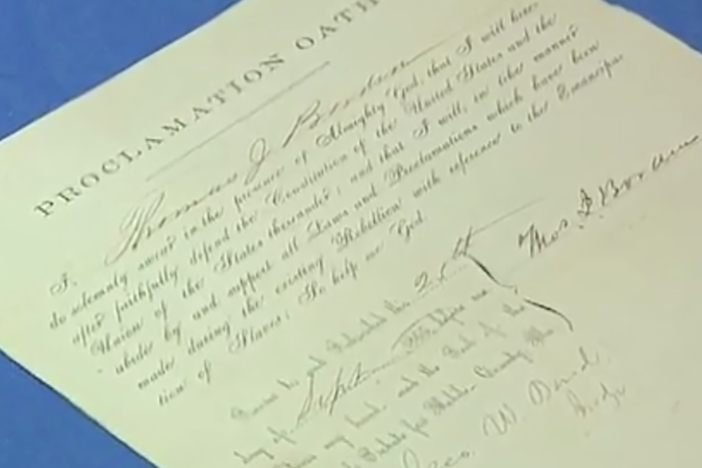 PROCLAMATION OATH
I, Thomas J.
do solemnly swear in the presence of Almighty God, that I will here
after faithfully defend the Constitution of the United States and the
Union of the States thereunder; and that I will, in like manner
abide by and support all Laws and Proclamations which have been
made during the existing Rebellion with reference to the Emancipa
tion of Slaves: So help me God.
Thos. J.
Sworn to and Subscribed this
day of Sept before me
my hand and the Seal of the
Probate for County, the
Geo. W.
Judge